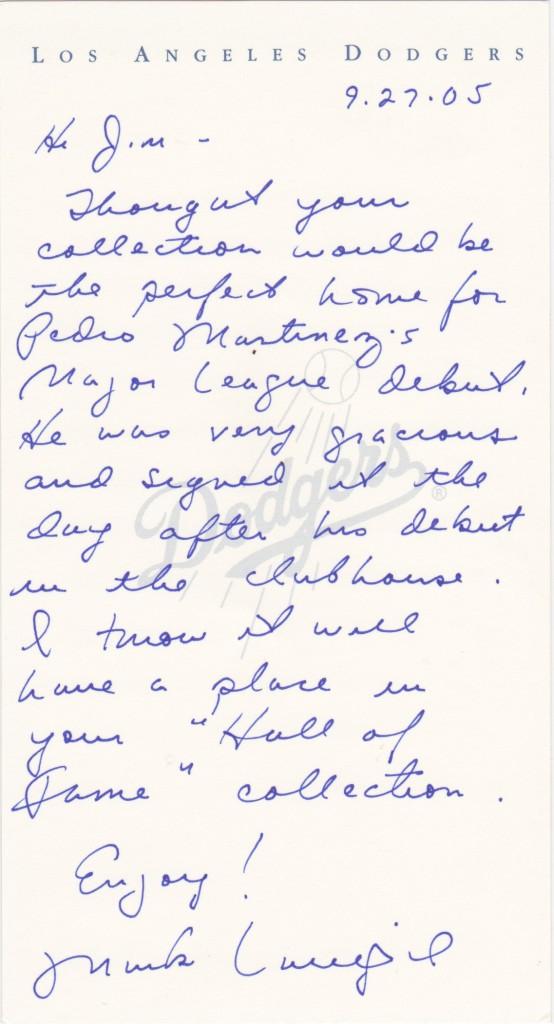 LOS ANGELES DODGERS
9.27.05
Hi Jim -
Thought your
collection would be
the perfect home for
Pedro Martinez's
Major League debut.
He was very gracious
and signed it the
day after his debut
in the clubhouse.
I know it will
have a place in
your "Hall of
Fame" collection.
Enjoy!
Mark Langill
Dodgers ®